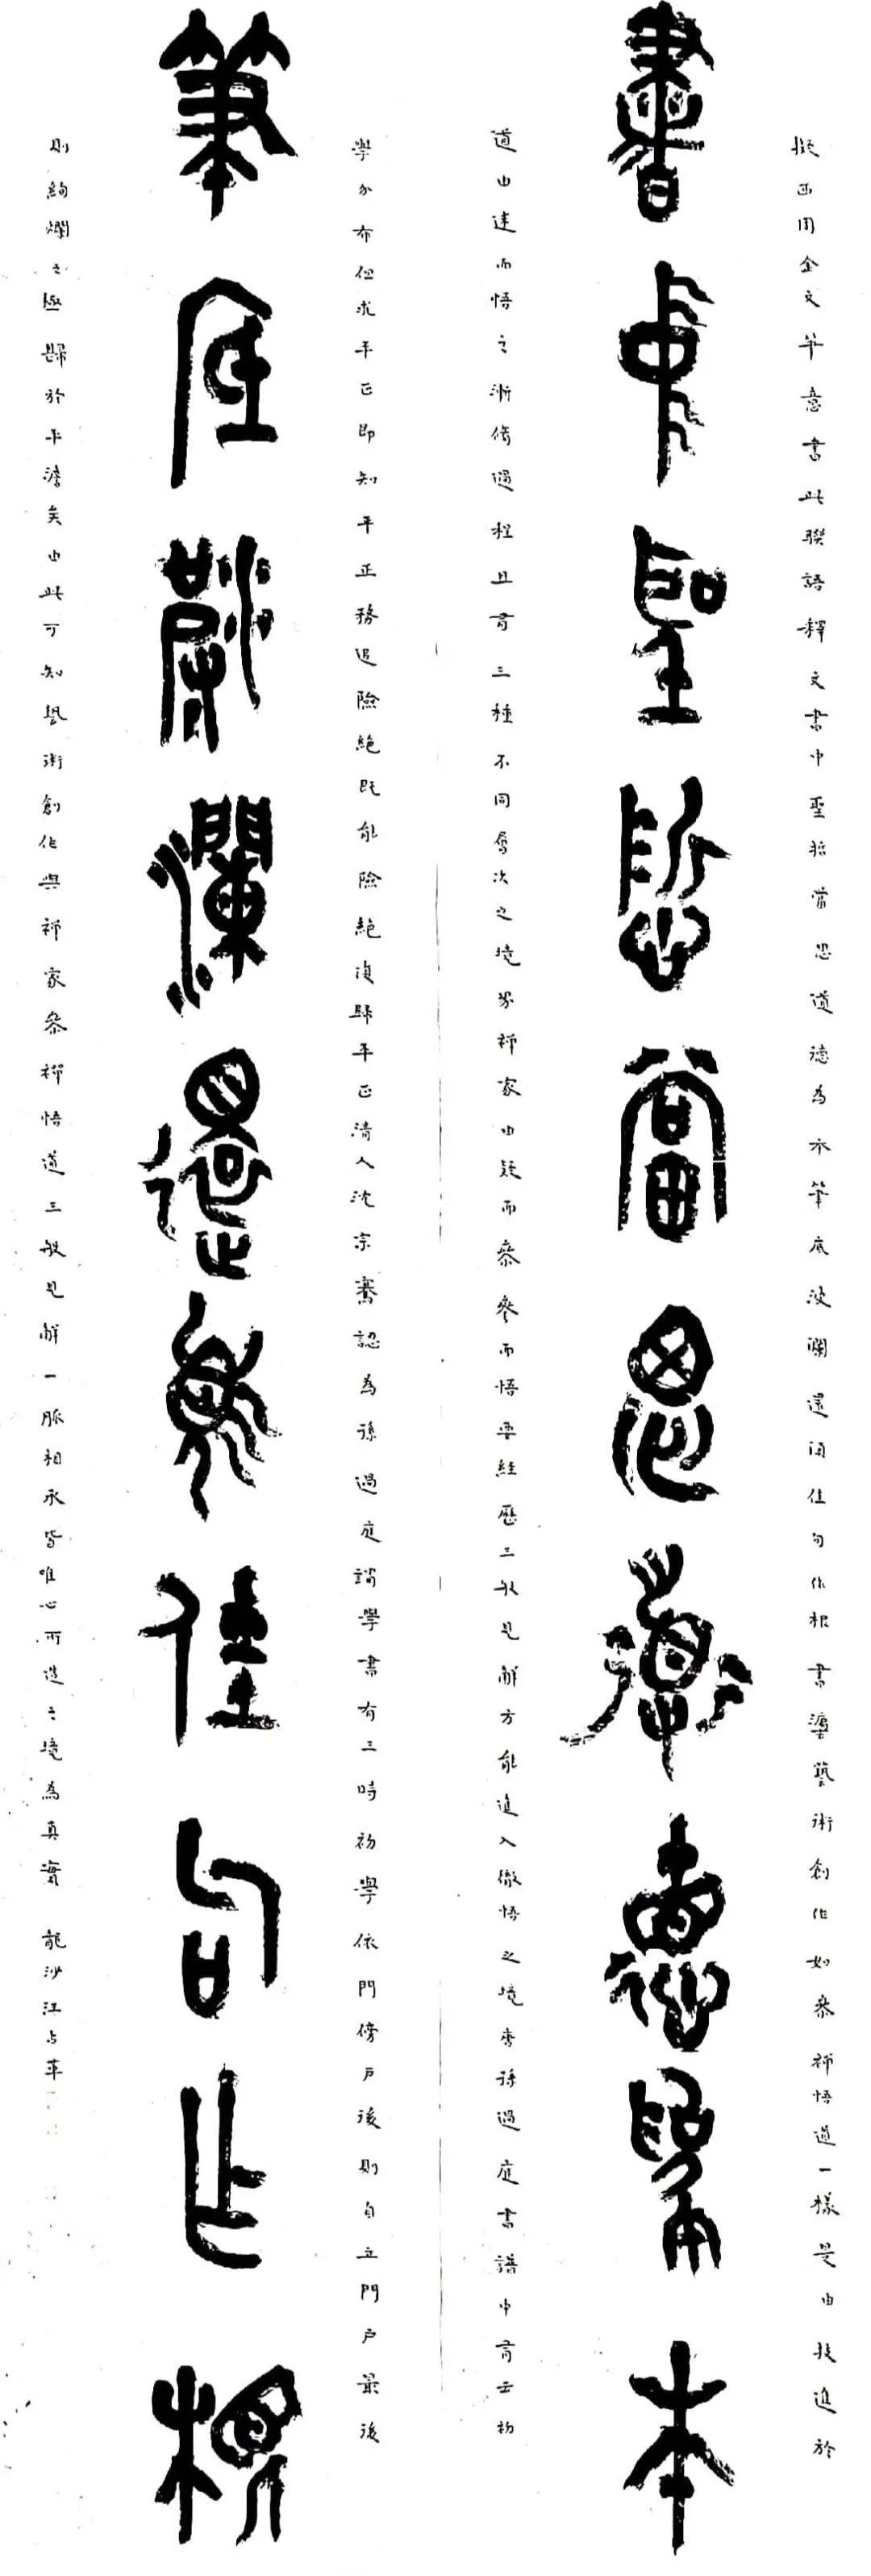 擬西周金文筆意書此聯語釋文書中聖哲當思道德為本筆底波瀾還須佳句作根書灋藝術創作如參禪悟道一樣是由技進於
書中聖哲當思道德為本
道由迷而悟之漸修過程且有三種不同層次之境界禪家由疑而參參而悟要經歷三般見解方能進入徹悟之境查孫過庭書譜中有云初
學分布但求平正即知平正務追險絕既能險絕復歸平正清人沈宗騫認為孫過庭謂學書有三時初學依門傍戶後則自立門戶最後
筆底波瀾還須佳句作根
則絢爛之極歸於平澹矣由此可知藝術創作與禪家參禪悟道三般見解一脈相承皆唯心所造之境為真實 龍沙江占革